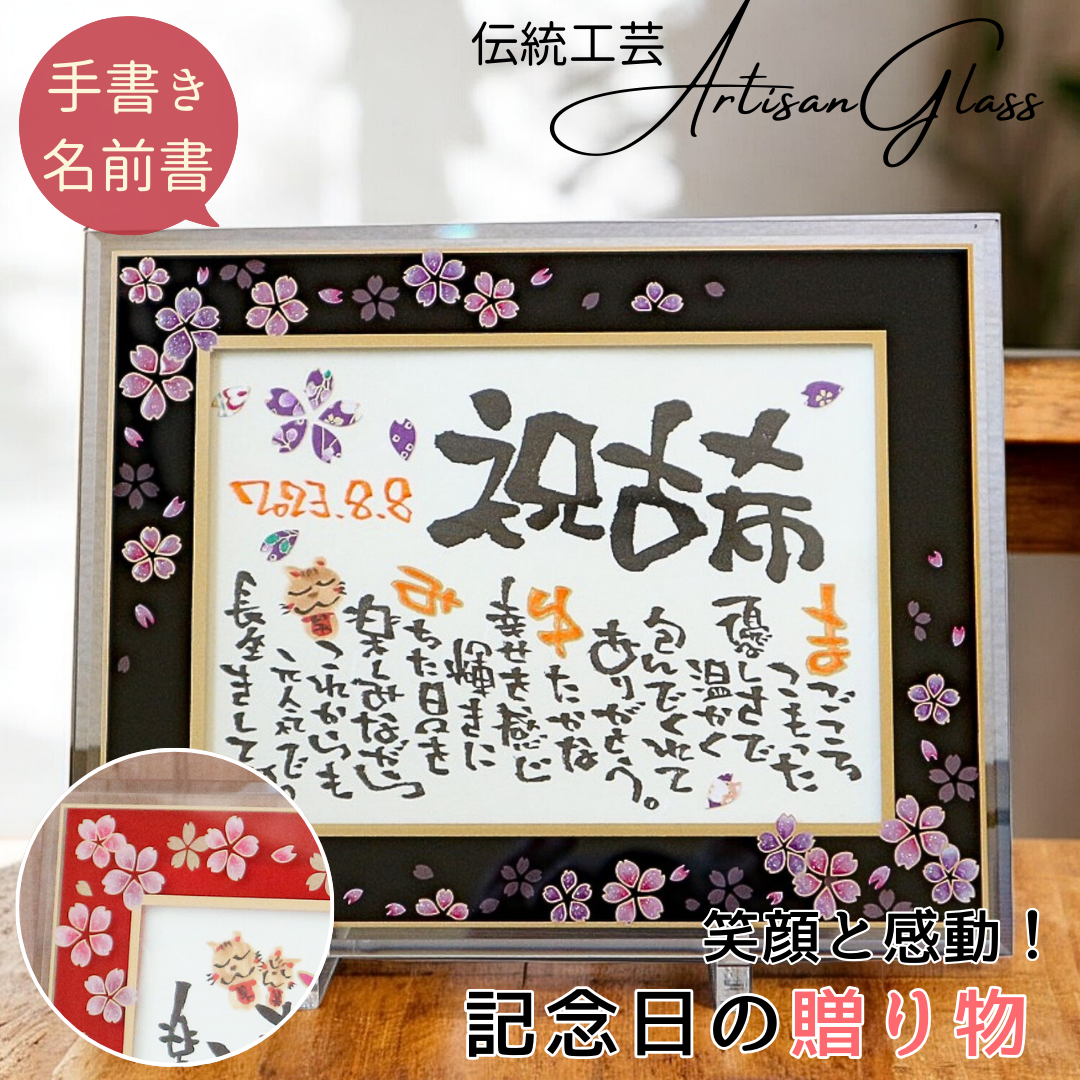 手書き
名前書
伝統工芸
Artisan Glass
祝古希
2023.8.8
まごころ
こもった
優しさで
温かく
包んでくれて
ありがとう。
たかな
幸せを感じ
輝きに
ちた日々を
楽しみながら
これからも
元気で
長生きして
笑顔と感動！
記念日の贈り物